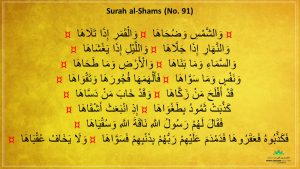 Surah al-Shams (No. 91)
وَالشَّمْسِ وَضُحَاهَا ¤ وَالْقَمَرِ إِذَا تَلَاهَا ¤
وَالنَّهَارِ إِذَا جَلَّاهَا ¤ وَاللَّيْلِ إِذَا يَغْشَاهَا ¤
وَالسَّمَاءِ وَمَا بَنَاهَا ¤ وَالْأَرْضِ وَمَا طَحَاهَا ¤
وَنَفْسٍ وَمَا سَوَّاهَا ¤ فَأَلْهَمَهَا فُجُورَهَا وَتَقْوَاهَا ¤
قَدْ أَفْلَحَ مَنْ زَكَّاهَا ¤ وَقَدْ خَابَ مَنْ دَسَّاهَا ¤
كَذَّبَتْ ثَمُودُ بِطَغْوَاهَا ¤ إِذِ انْبَعَثَ أَشْقَاهَا ¤
فَقَالَ لَهُمْ رَسُولُ اللَّهِ نَاقَةَ اللَّهِ وَسُقْيَاهَا ¤
فَكَذَّبُوهُ فَعَقَرُوهَا فَدَمْدَمَ عَلَيْهِمْ رَبُّهُمْ بِذَنْبِهِمْ فَسَوَّاهَا ¤ وَلَا يَخَافُ عُقْبَاهَا ¤